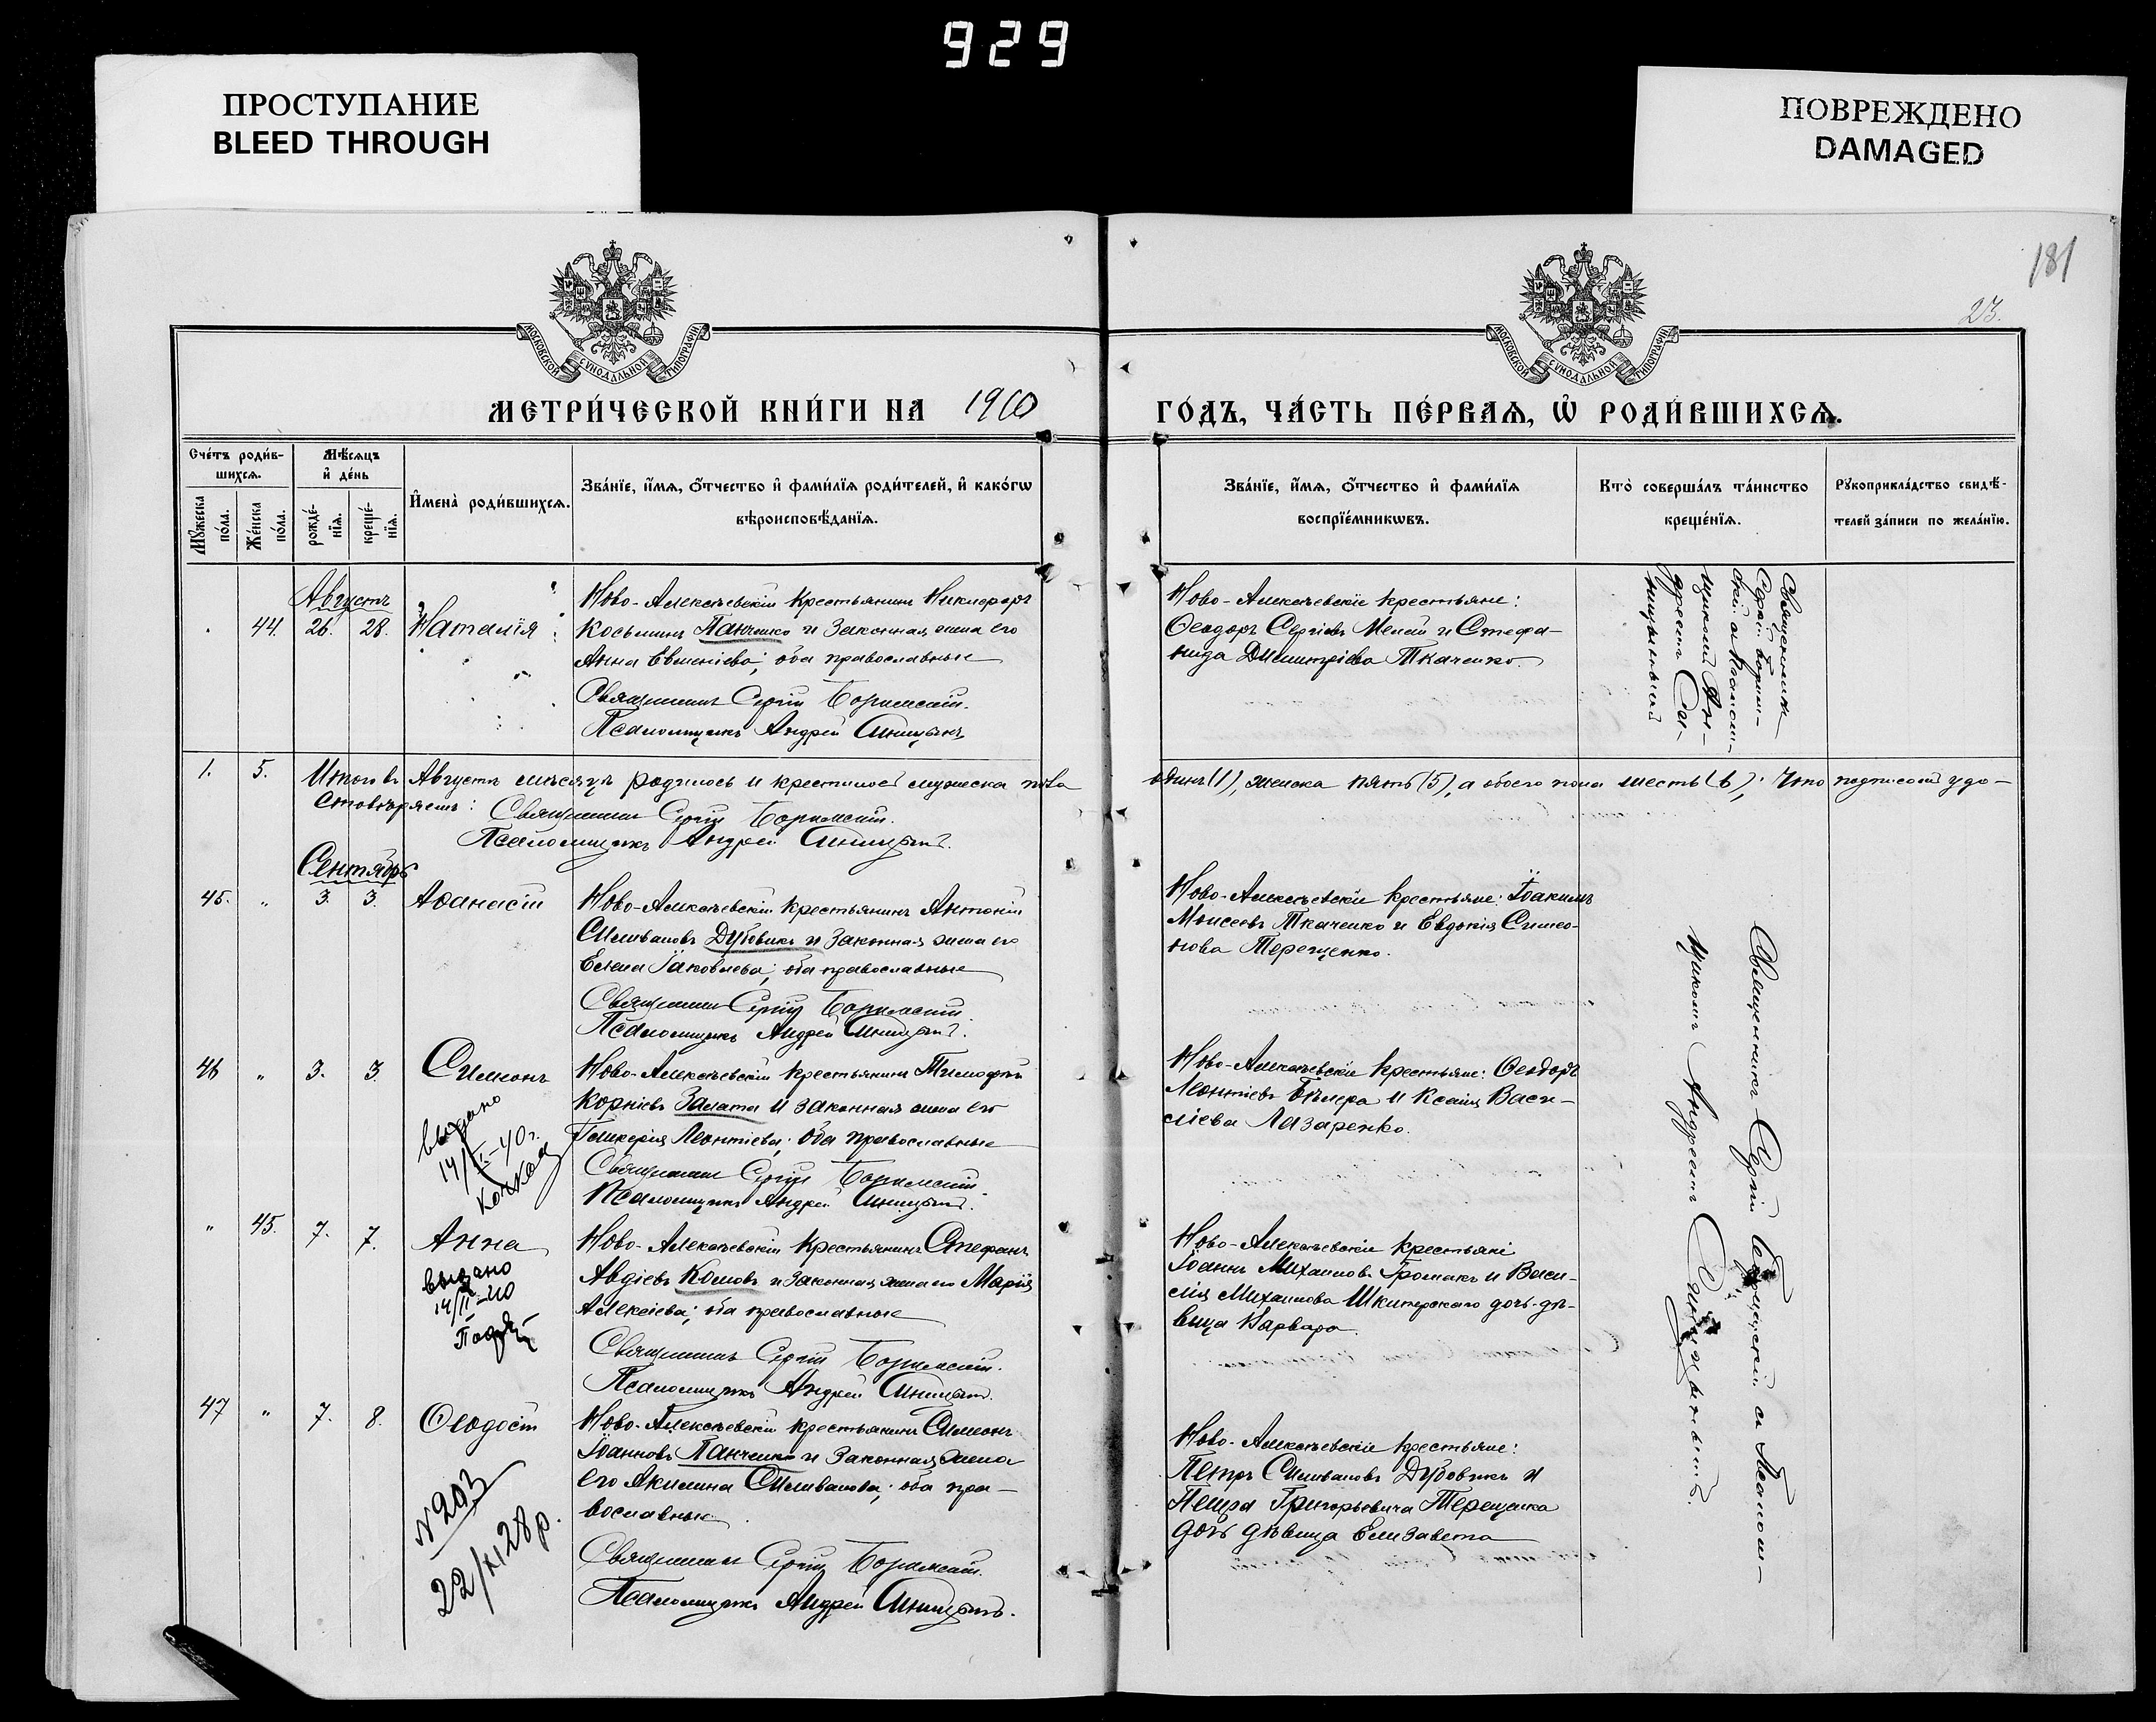 929
ПРОСТУПАНИЕ
BLEED THROUGH
ПОВРЕЖДЕНО
DAMAGED
181
23.
МОСКОВСКОЙ СѴНОДАЛЬНОЙ ТИПОГРАФІИ
МОСКОВСКОЙ СѴНОДАЛЬНОЙ ТИПОГРАФІИ
МЕТРИ́ЧЕСКОЙ КНИ́ГИ НА 1910
ГО́ДЪ, ЧА́СТЬ ПЕ́РВАѦ, Ѡ҆ РОДИ́ВШИХСѦ.
Сче́тъ роди́в-
шихсѧ.
Мꙋ́жеска по́ла.
Же́нска по́ла.
Мѣ́сѧцъ
и҆ де́нь
рожде́-
нїѧ.
креще́-
нїѧ.
И҆мена̀ роди́вшихсѧ.
Зва́нїе, и҆́мѧ, ѻ҆́тчество и҆ фами́лїѧ роди́телей, и҆ како́гѡ
вѣроисповѣ́данїѧ.
Зва́нїе, и҆́мѧ, ѻ҆́тчество и҆ фами́лїѧ
воспрїе́мникѡвъ.
Кто̀ соверша́лъ та́инство
креще́нїѧ.
Рꙋкоприкла́дство свидѣ́-
телей за́писи по жела́нїю.
Августъ
44. 26. 28. Наталія
Ново-Алексѣевскій крестьянинъ Никифоръ
Косьминъ Панченко и законная жена его
Анна Евменіева; оба православные
Священникъ Сергій
Псаломщикъ Андрей Синицынъ
Ново-Алексѣевскіе крестьяне:
Ѳеодоръ Сергіевъ Мелай и Стефа-
нида Димитріева Ткаченко.
Священникъ
Сергій
съ Псалом-
щикомъ Ан-
дреемъ Си-
1. 5. Итого въ Августѣ мѣсяцѣ родилось и крестилось мужеска пола одинъ (1), женска пять (5), а обоего пола шесть (6); Что подписомъ удо-
стовѣряемъ: Священникъ Сергій
Псаломщикъ Андрей Синицынъ.
Сентябрь
45. " 3. 3. Аѳанасій
Ново-Алексѣевскій крестьянинъ Антоній
Силивановъ Дубовикъ и законная жена его
Елена Іаковлева; оба православные
Священникъ Сергій
Псаломщикъ Андрей Синицынъ.
Ново-Алексѣевскіе крестьяне: Іоакимъ
Моисеевъ Ткаченко и Евдокія Симео-
нова Терещенко.
46 " 3. 3. Симеонъ
выдано
14/II-40г.
Ново-Алексѣевскій крестьянинъ Тимофей
Корніевъ Залата и законная жена его
Гликерія Леонтіева; оба православные
Священникъ Сергій
Псаломщикъ Андрей Синицынъ.
Ново-Алексѣевскіе крестьяне: Ѳеодоръ
Леонтіевъ и Ксенія Васи-
ліева Лазаренко.
" 45. 7. 7. Анна
выдано
14/II-40
Ново-Алексѣевскій крестьянинъ Стефанъ
Авдіевъ Комовъ и законная жена его Марія
Алексіева; оба православные
Священникъ Сергій
Псаломщикъ Андрей Синицынъ.
Ново-Алексѣевскіе крестьяне
Іоаннъ Михаиловъ Громакъ и Васи-
лія Михаилова Шкиперскаго дочь-дѣ-
вица Варвара.
47 " 7. 8. Ѳеодосій
N 203
22/XI 28 р.
Ново-Алексѣевскій крестьянинъ Симеонъ
Іоанновъ Панченко и законная жена
его Акилина Силиванова; оба пра-
вославные
Священникъ Сергій
Псаломщикъ Андрей Синицынъ.
Ново-Алексѣевскіе крестьяне:
Петръ Силивановъ Дубовикъ и
Петра Григорьевича Терещенка
дочь дѣвица Елизавета
Священникъ Сергій съ Псалом-
щикомъ Андреемъ